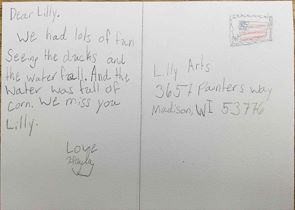 Dear Lilly.
We had lots of fun
Seeing the ducks and
the waterfall. And the
Water was full of
corn. We miss you
Lilly.
Love
Hayla
Lilly Arts
3657 Painters Way
Madison, WI 53776